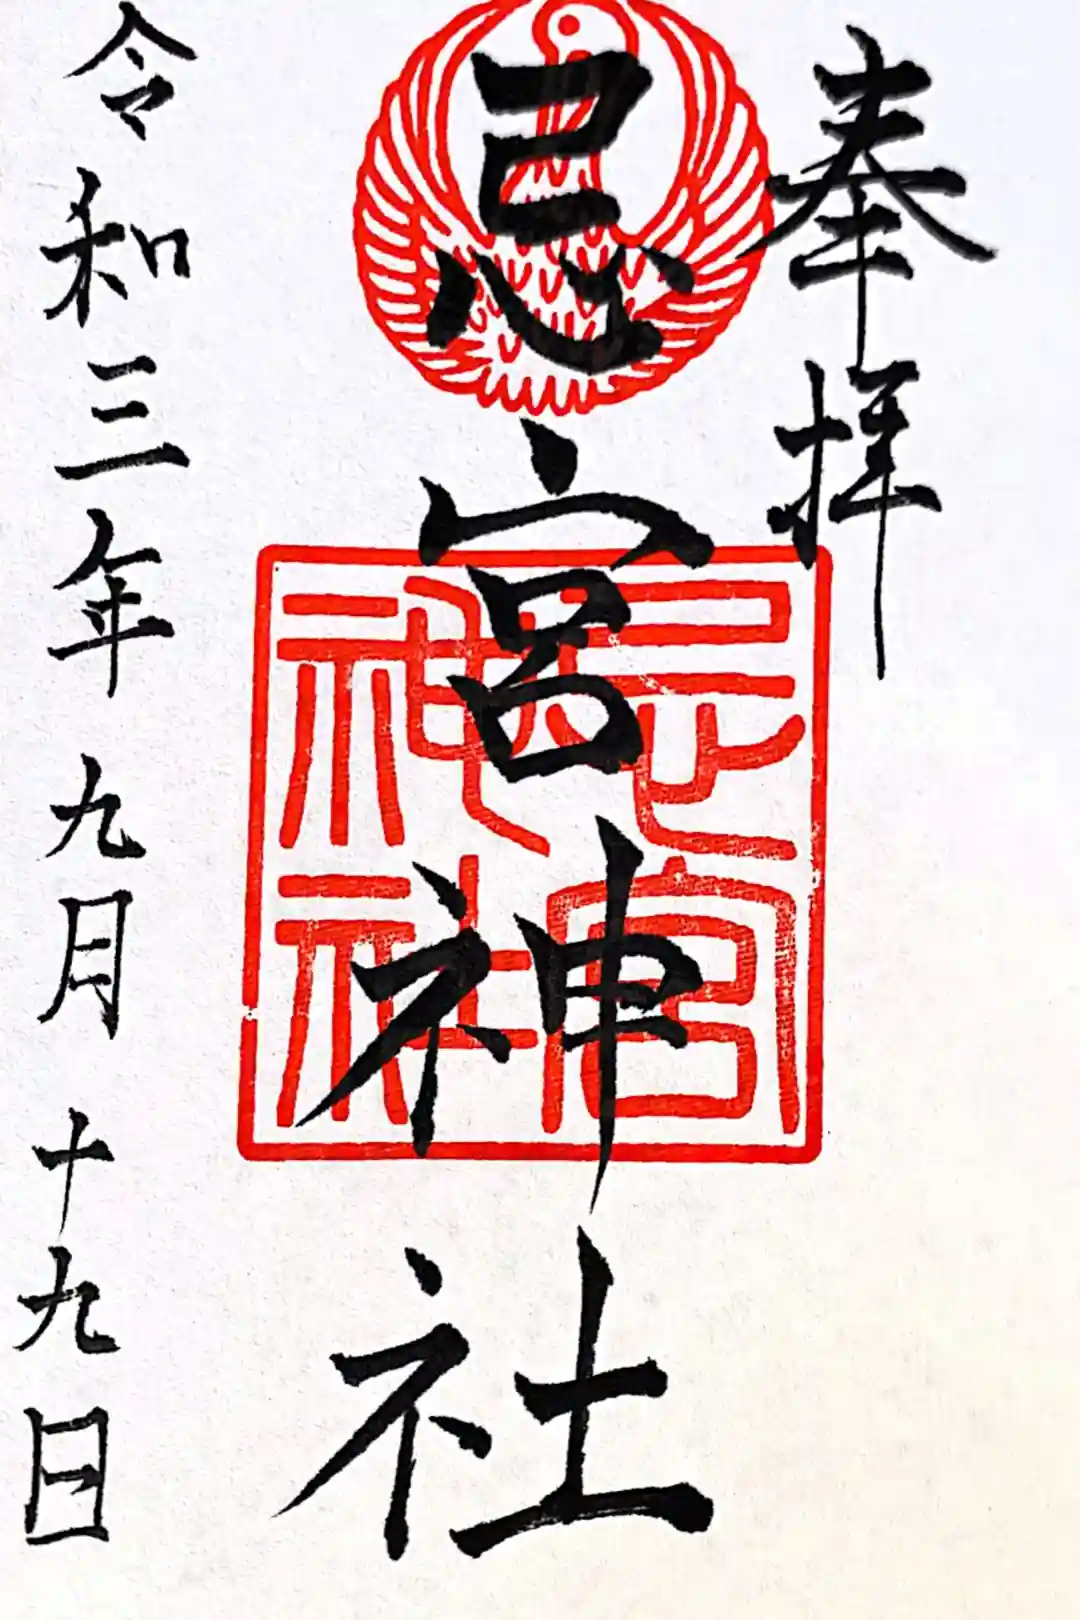 奉拝
忌宮神社
忌宮
神社
令和三年九月十九日